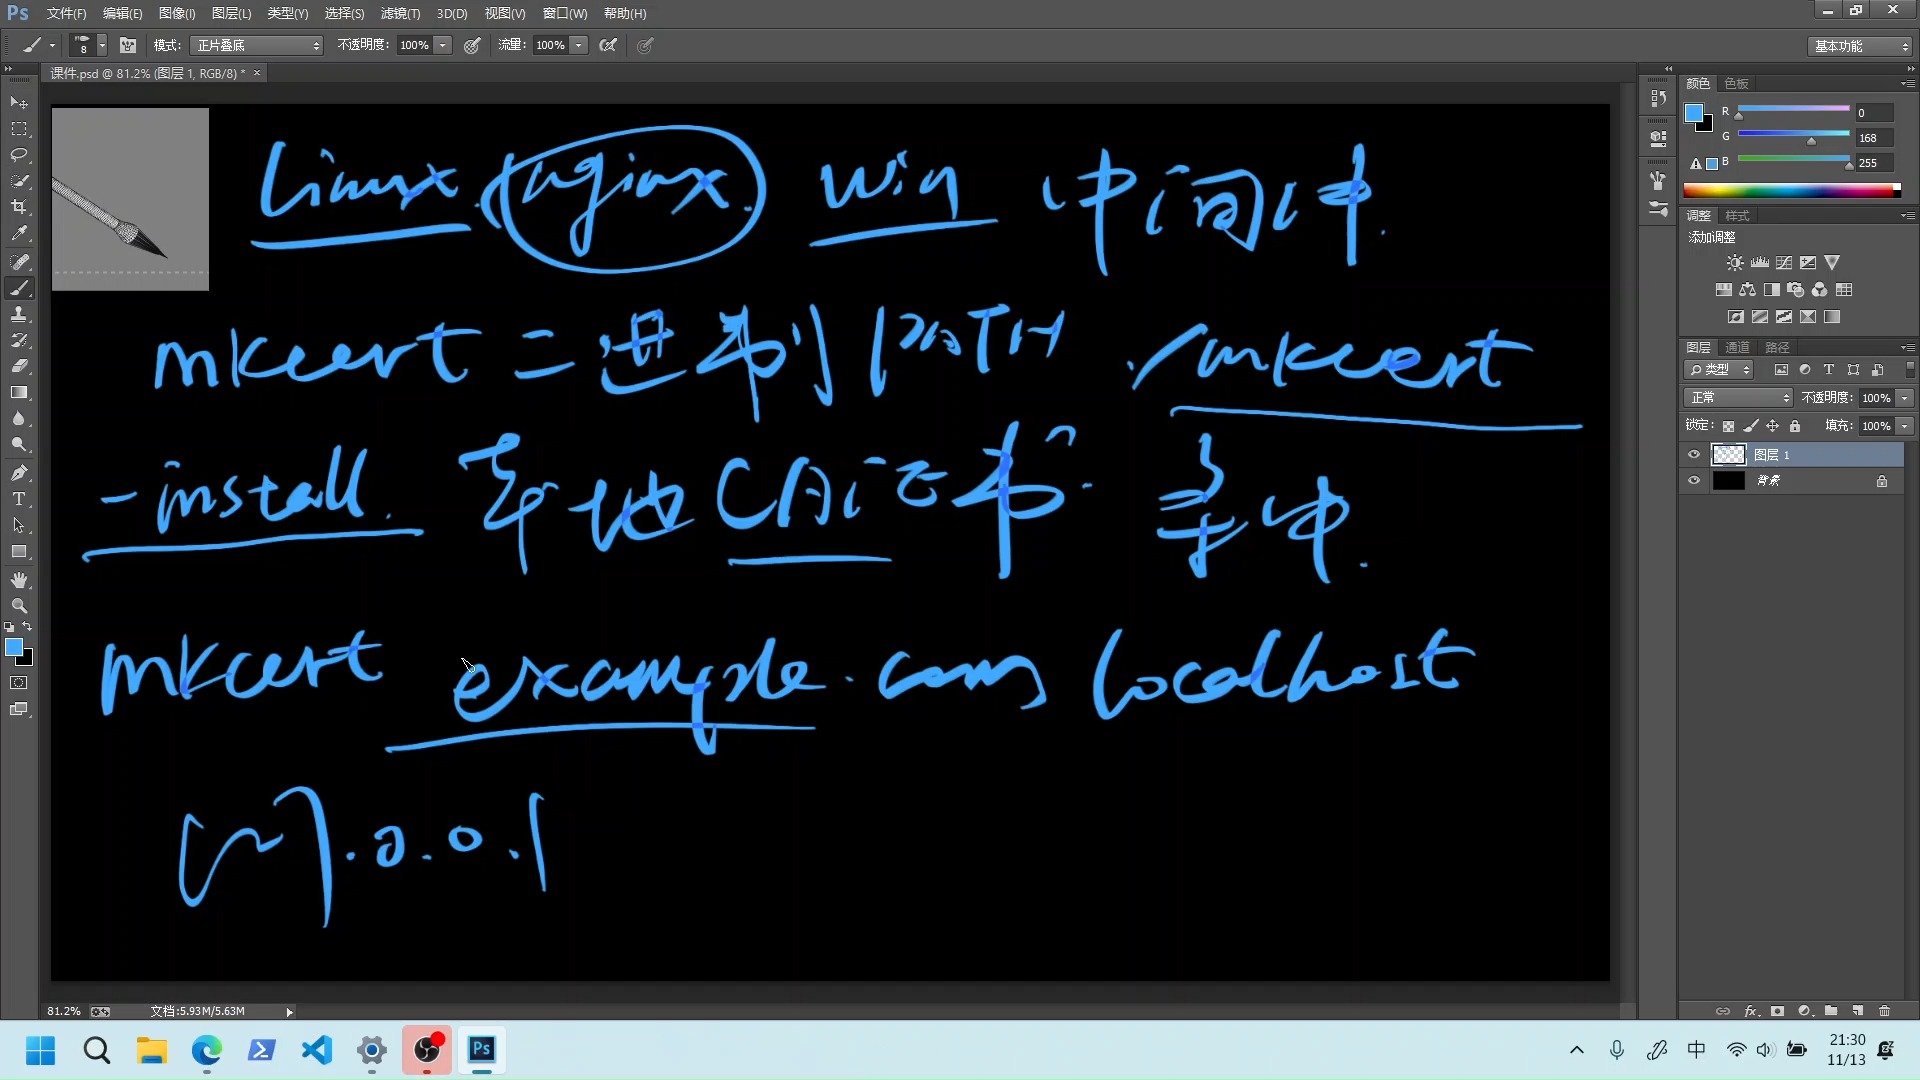 Ps 文件(F) 编辑(E) 图像(I) 图层(L) 类型(Y) 选择(S) 滤镜(T) 3D(D) 视图(V) 窗口(W) 帮助(H)
8 模式: 正片叠底 不透明度: 100% 流量: 100% 基本功能
课件.psd @ 81.2% (图层 1, RGB/8) * ×
颜色 色板
R 0
G 168
B 255
调整 样式
添加调整
图层 通道 路径
类型
正常 不透明度: 100%
锁定: 填充: 100%
图层 1
背景
Linux nginx win 中间件
mkcert 二进制 PATH ./mkcert
-install 本地CA证书
mkcert example.com localhost
127.0.0.1
81.2% 文档:5.93M/5.63M
Ps 中 21:30
11/13